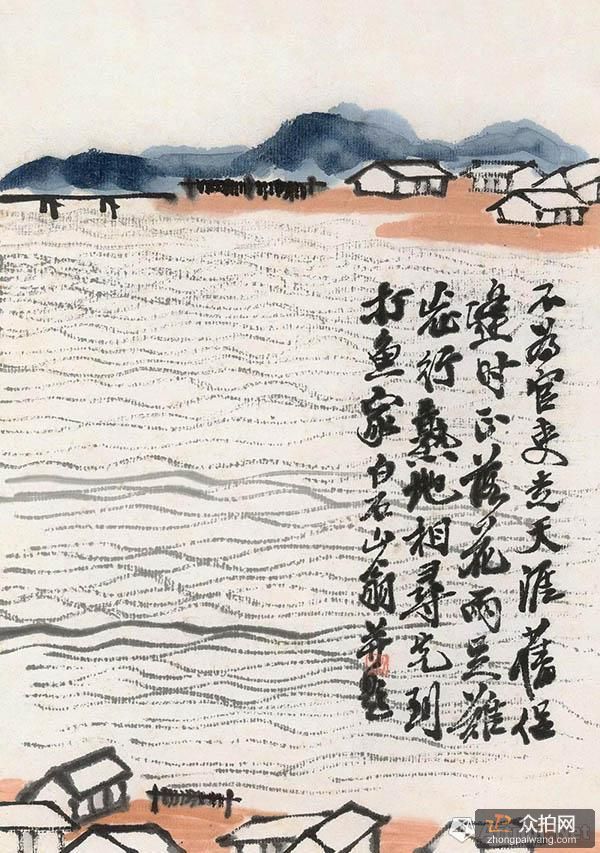 不為官吏走天涯舊侶
逢时正落花兩足難
忘行熟地相尋先到
打魚家白石山翁并題
众拍网
zhongpaiwang.com